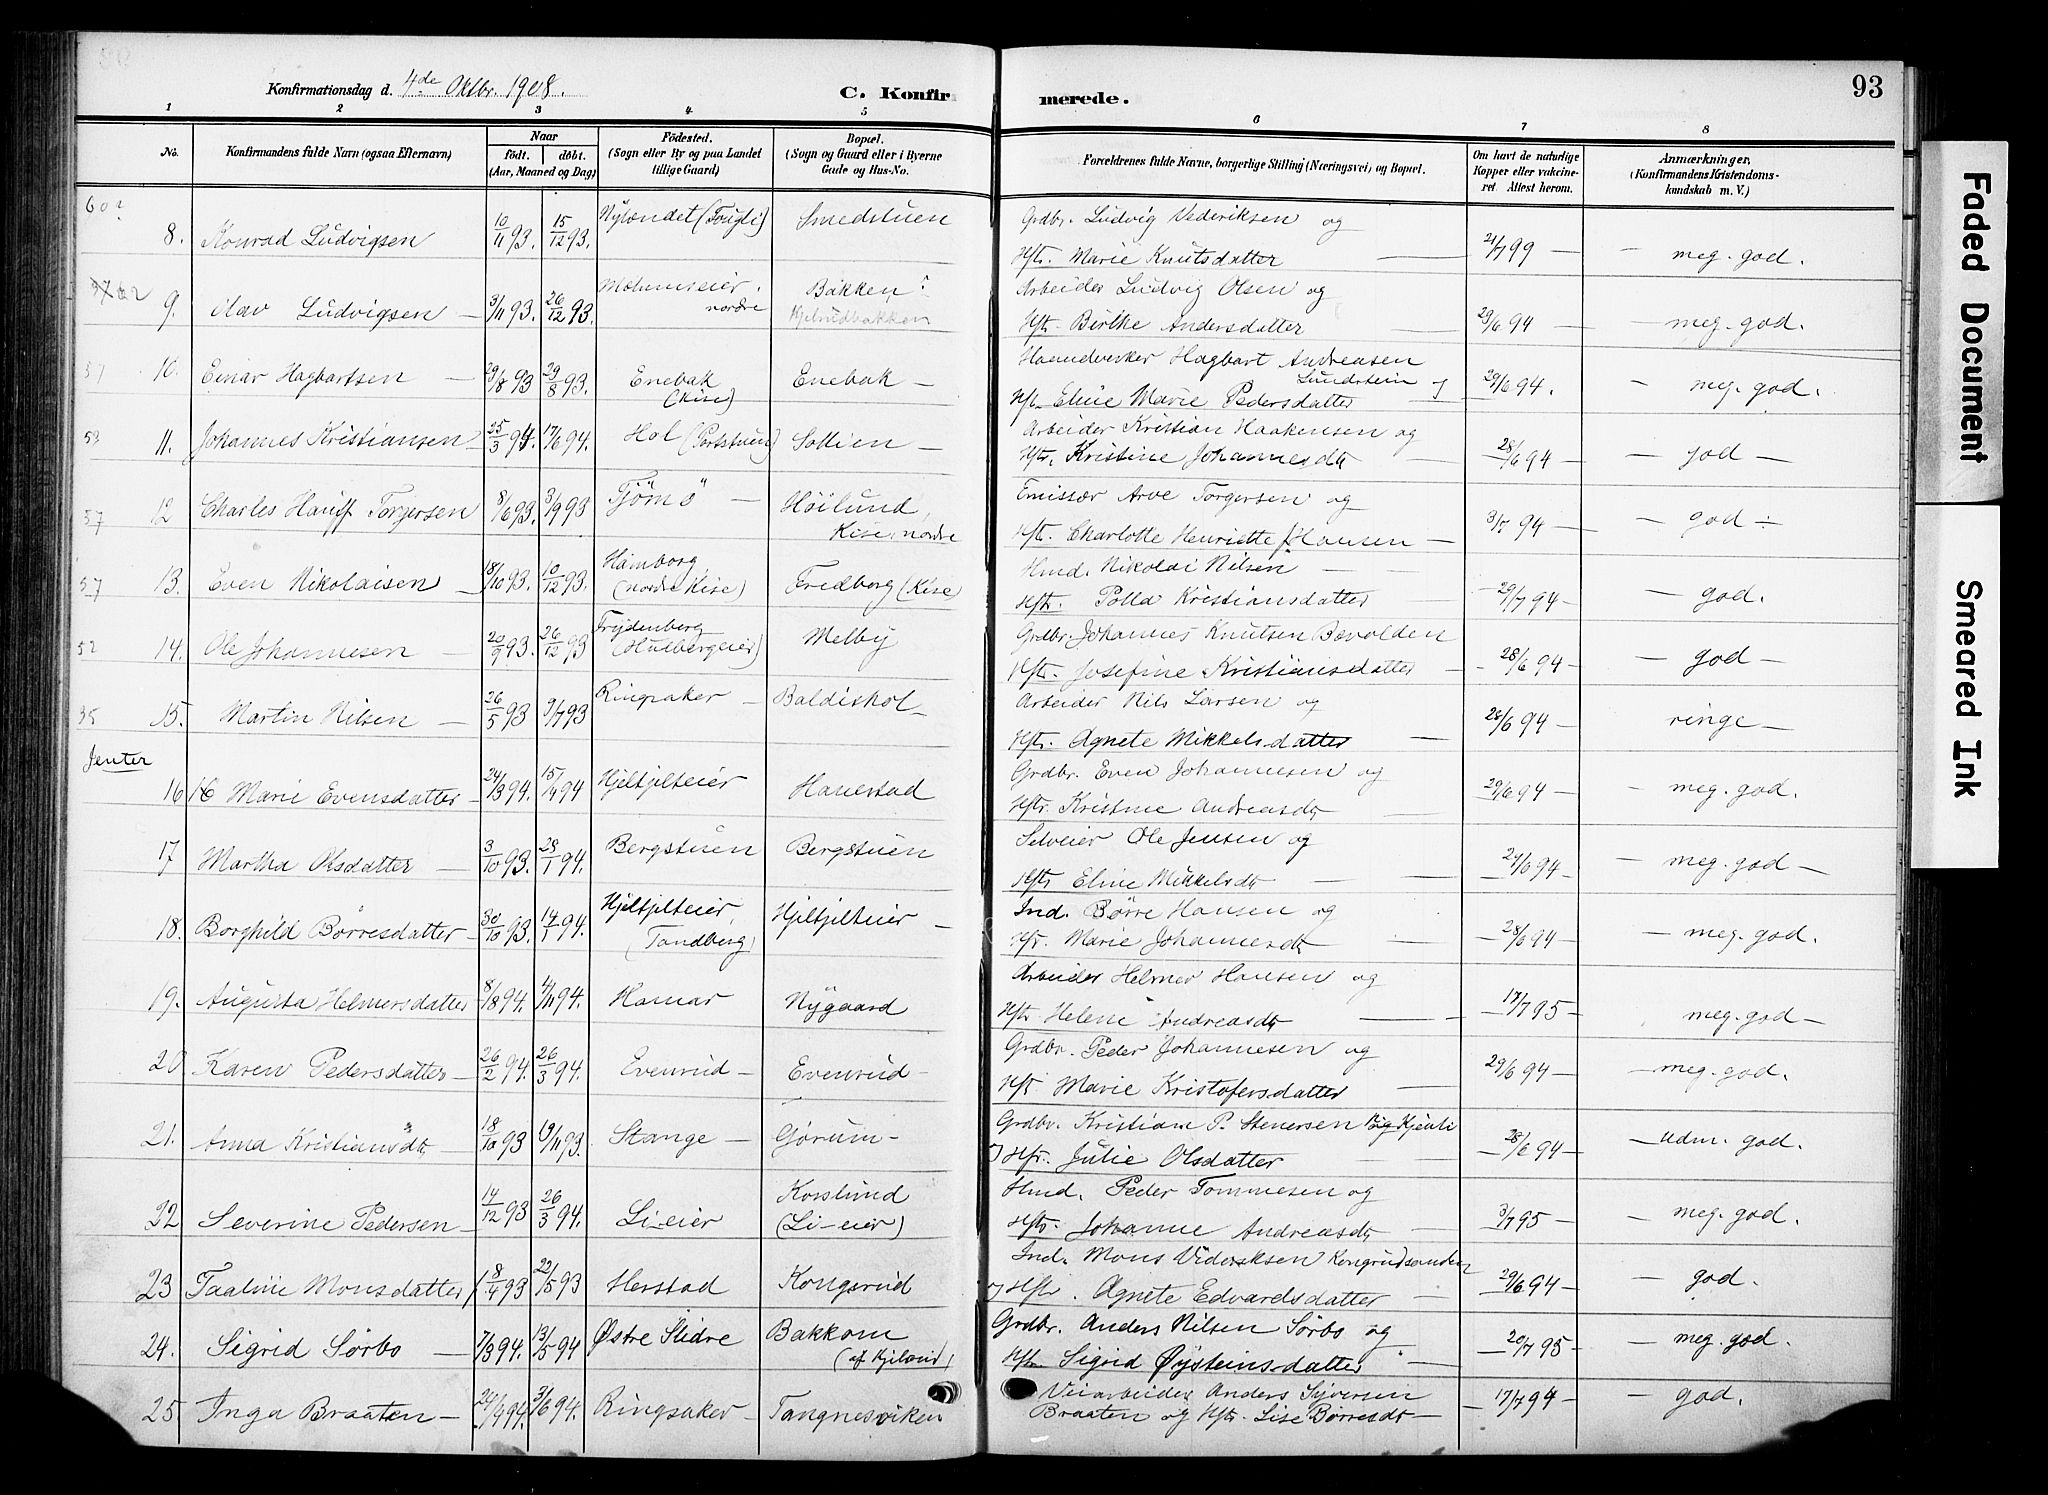 Konfirmationsdag d. 4de Oktbr. 1908.
C. Konfirmerede.
93
1 2 3 4 5 6 7 8
No.
Konfirmandens fulde Navn (ogsaa Efternavn)
Naar
födt. döbt.
(Aar, Maaned og Dag)
Födested.
(Sogn eller By og paa Landet
tillige Gaard)
Bopæl.
(Sogn og Gaard eller i Byerne
Gade og Hus-No.
Forældrenes fulde Navne, borgerlige Stilling (Næringsvei) og Bopæl.
Om havt de naturlige
Kopper eller vakcine-
ret. Attest herom.
Anmærkninger,
(Konfirmandens Kristendoms-
kundskab m. V.)
8. Konrad Ludvigsen 10/11 93. 15/12 93. Smedstuen
Grdbr. Ludvig Vederiksen og
Hft. Marie Knutsdatter 21/7 99 — meg. god.
9. Olav Ludvigsen 3/11 93. 26/12 93. nordre Bakken
Arbeider Ludvig Olsen og
Hft. Birthe Andersdatter 29/6 94 — meg. god.
37 10. Einar Hagbartsen 29/8 93 29/8 93. Enebak (Kise) Enebak —
Haandverker Hagbart Andreasen
Lundstein og
Hft. Eline Marie Pedersdatter 29/6 94. — meg. god.
53 11. Johannes Kristiansen 25/3 94. 17/6 94. Hol Sollien —
Arbeider Kristian Haakensen og
Hft. Kristine Johannesdt. 28/6 94 — god —
57 12 Charles Torgersen 8/6 93. 3/9 93 Tjömö — Höilund, Kise, nordre
Emissær Arve Torgersen og
Hft. Charlotte Henriette Hansen — 3/7 94 — god
57 13. Even Nikolaisen 18/10 93. 10/12 93. Hamborg (nordre Kise) Fredborg (Kise)
Hmd. Nikolai Nilsen
Hft. Polla Kristiansdatter 29/7 94 — god.
52 14. Ole Johannesen 20/9 93. 26/12 93 Melby
Grdbr. Johannes Knutsen Bævolden
Hft. Josefine Kristiansdatter 28/6 94 — god —
35 15. Martin Nilsen 26/5 93 9/7 93 Ringsaker — Baldishol —
Arbeider Nils Larsen og
Hft. Agnete Mikkelsdatter 28/6 94 — ringe —
Jenter
16 Marie Evensdatter 24/3 94. 15/4 94 Hjeltjilteier Hanestad
Grdbr. Even Johannesen og
Hft. Kristine Andreasdt. 29/6 94 — meg. god.
17 Martha Olsdatter 3/10 93. 28/1 94. Bergstuen Bergstuen
Selveier Ole Jensen og
Hft. Eline Mikkelsdt. 29/6 94 — meg. god —
18. Borghild Börresdatter 30/10 93. 14/1 94. Hjeltjilteier, (Tandberg) Hjeltjilteier —
Ind. Börre Hansen og
Hft. Marie Johannesdt. 28/6 94 — meg. god.
19. Augusta Helmersdatter 8/8 94. 4/11 94. Hamar Nygaard
Arbeider Helmer Hansen og
Hft. Helene Andreasdt. 17/7 95 — meg. god —
20 Karen Pedersdatter 26/2 94. 26/3 94. Evenrud — Evenrud —
Grdbr. Peder Johannesen og
Hft. Marie Kristofersdatter 29/6 94 — meg. god.
21. Anna Kristiansdt. 18/10 93 19/11 93. Stange — Görum —
Grdbr. Kristian P. Stenersen
Hft. Julie Olsdatter 28/6 94 — udm. god.
22 Severine Pedersen 14/12 93 26/3 94. Li-eier Korslund (Li-eier)
Hmd. Peder Tommesen og
Hft. Johanne Andreasdt. 3/7 95 — meg. god.
23 Taaline Monsdatter 8/4 93 22/5 93 Herstad Kongsrud
Ind. Mons Videriksen
og Hft. Agnete Edvardsdatter 29/6 94 — god.
24. Sigrid Sörbo 7/3 94. 13/5 94 Østre Slidre Bakkom
Grdbr. Anders Nilsen Sörbo og
Hft. Sigrid Øysteinsdatter 20/7 95 — meg. god.
25 Inga Braaten 3/6 94. Ringsaker — Tangnesviken
Veiarbeider Anders Syversen
Braaten og Hft. Lise Börresdt — 17/7 94 — god.
Faded Document
Smeared Ink